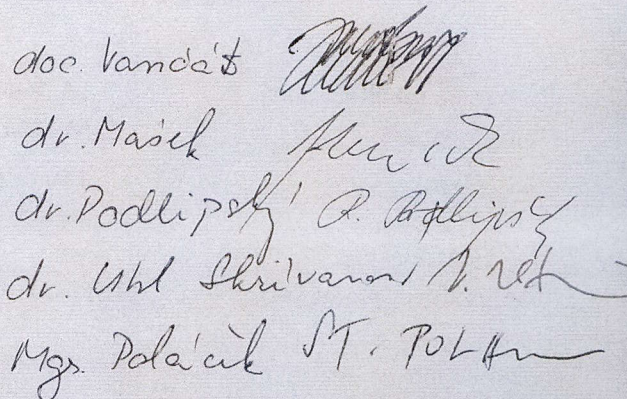 doc. Vančát
dr. Mašek
dr. Podlipský P. Podlipský
dr. Uhl Skřivanová
Mgr. Poláček ST. POLA